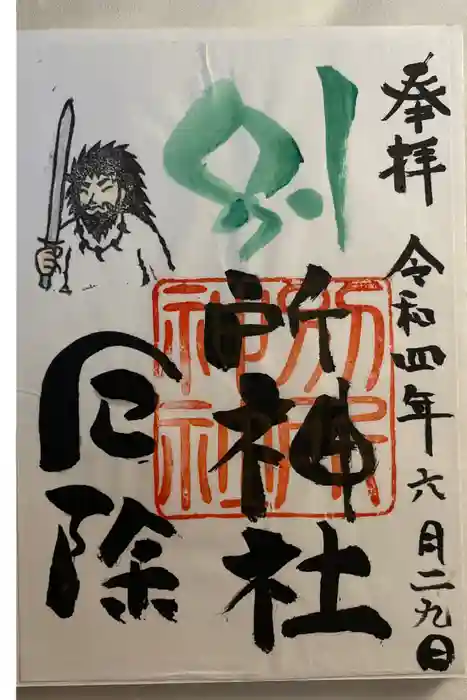 奉拝 令和四年六月二九日
別所神社
厄除
別所
神社